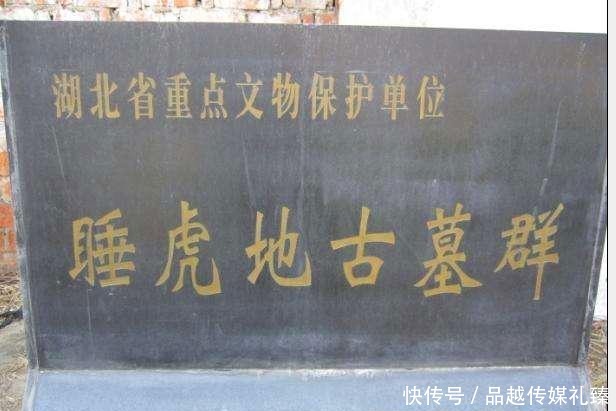 湖北省重点文物保护单位
睡虎地古墓群
快传号/品越传媒礼臻